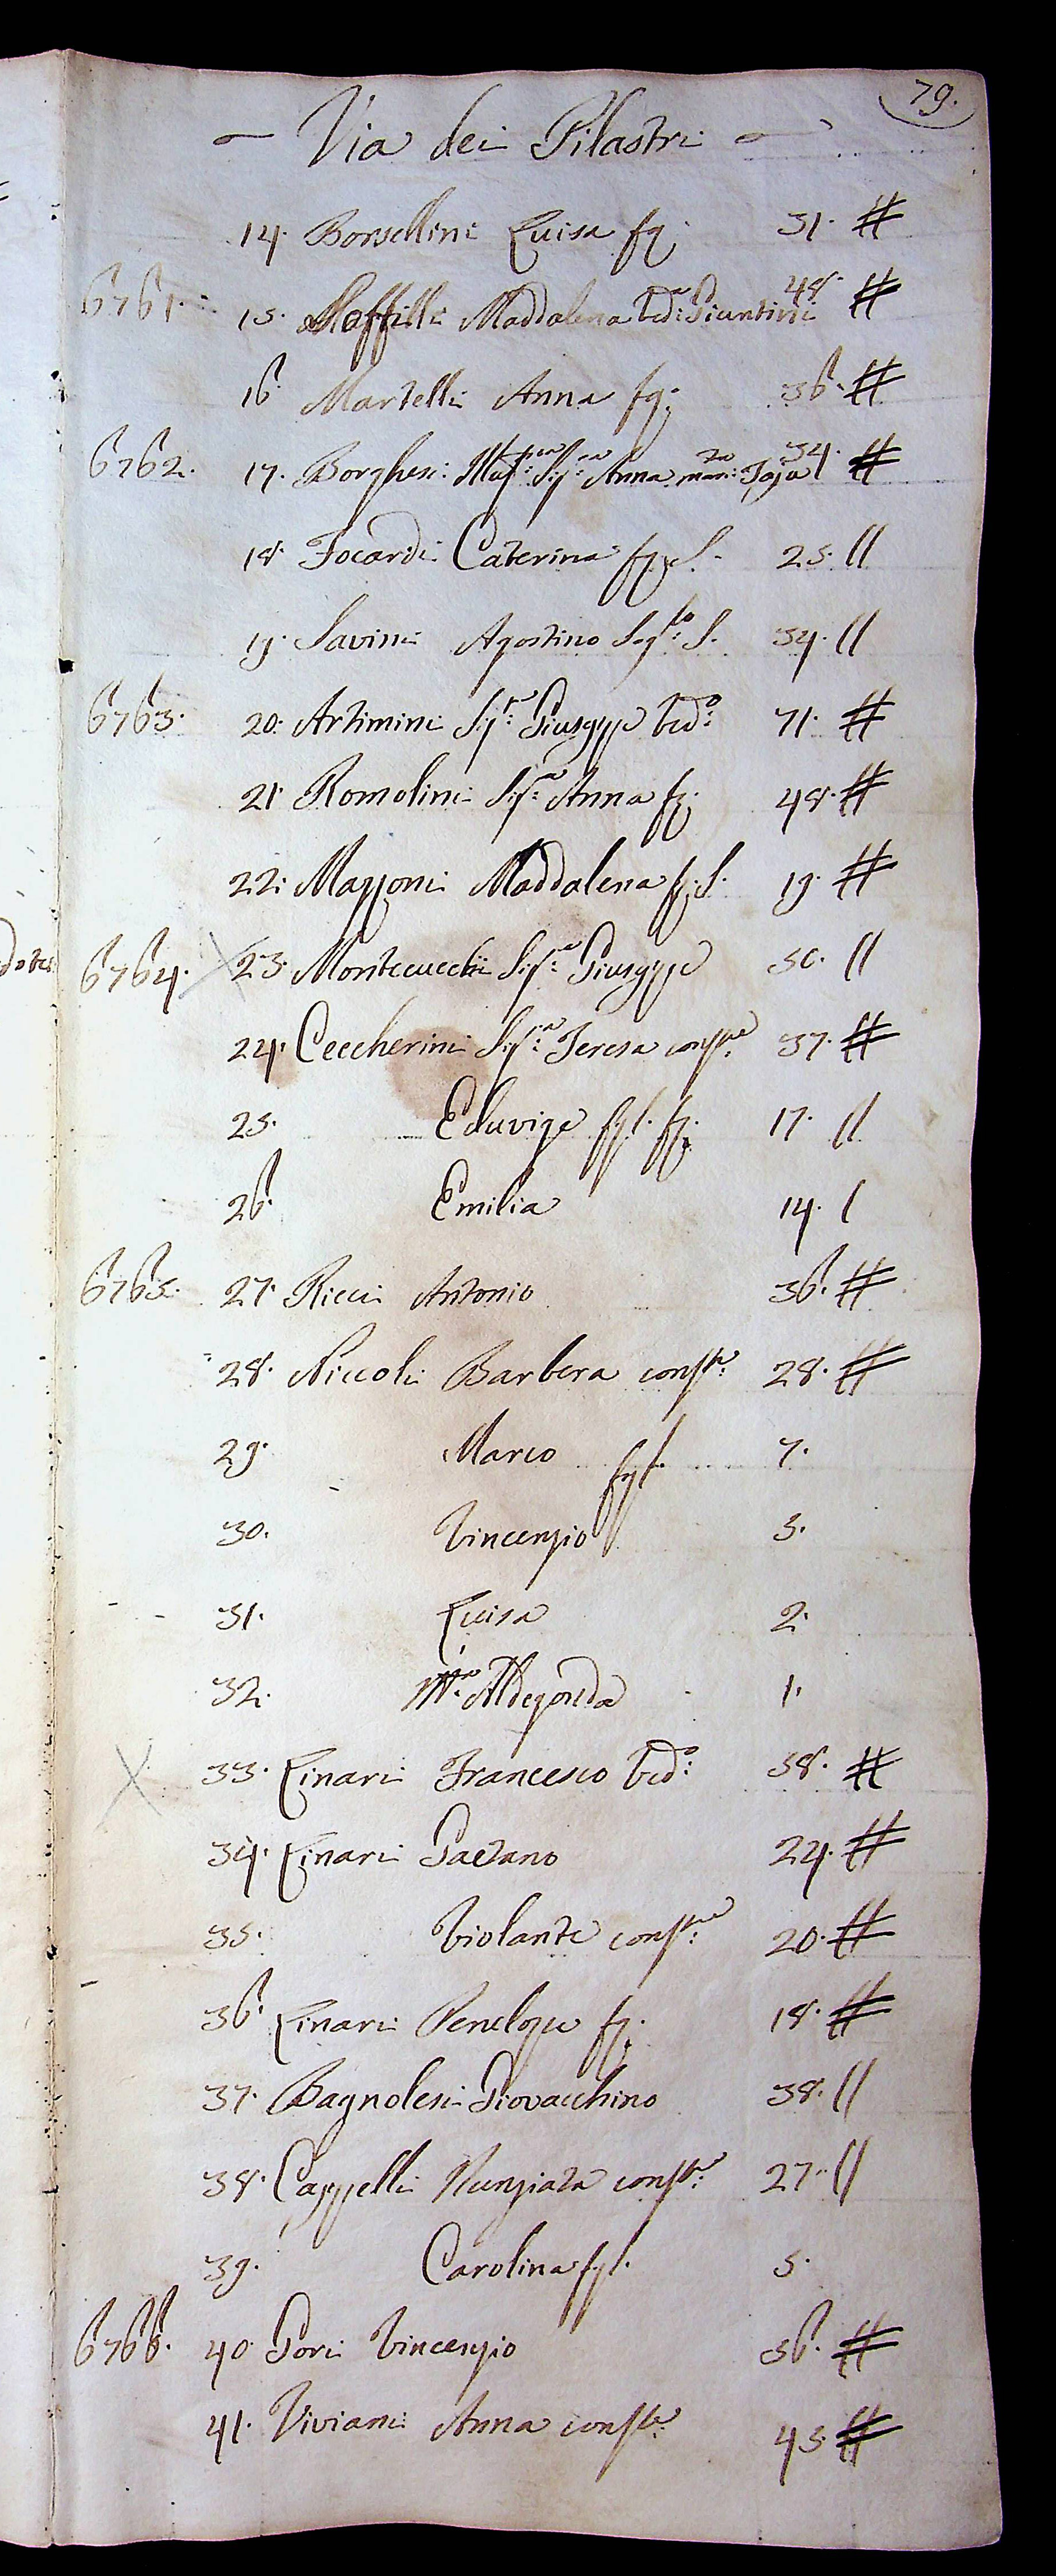 79.
Via dei Pilastri
14. Borsellini Luisa fz. 31. #
6761. 15. Maddalena ved: Giuntini 48. #
16. Martelli Anna fz. 36. #
6762. 17. Borghesi Illus:ma Sig:ra Anna mar:ta 34. #
18. Focardi Caterina fz. S. 25. //
19. Savini Agostino Sog:to S. 34. //
6763. 20. Artimini Sig:r Giuseppe ved:o 71. #
21. Romolini Sig:ra Anna fz. 48. #
22. Mazzoni Maddalena fz. S. 19. #
6764. X 23. Montecucchi Sig:r Giuseppe 50. //
24. Ceccherini Sig:ra Teresa cons:te 37. #
25. Eduvige figl. fz. 17. //
26. Emilia 14. /
6765. 27. Ricci Antonio 36. #
28. Niccoli Barbera cons:te 28. #
29. Marco figl. 7.
30. Vincenzio 5.
31. Luisa 2.
32. M:a Aldegonda 1.
X 33. Linari Francesco ved:o 58. #
34. Linari Gaetano 24. #
35. Violante cons:te 20. #
36. Linari Penelope fz. 18. #
37. Bagnolesi Giovacchino 38. //
38. Cappelli Nunziata cons:te 27. //
39. Carolina figl. 5.
6766. 40. Gori Vincenzio 56. #
41. Viviani Anna cons:te 45. #